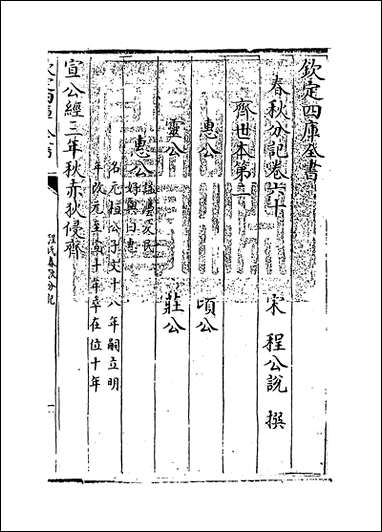 欽定四庫全書
春秋分記卷六十　宋　程公說　撰
齊世本第二
惠公　頃公
靈公　莊公
惠公　諡法愛民好與曰惠
名元桓公子文十八年嗣立明
年改元至宣十年卒在位十年
宣公經三年秋赤狄侵齊
程氏春秋分記